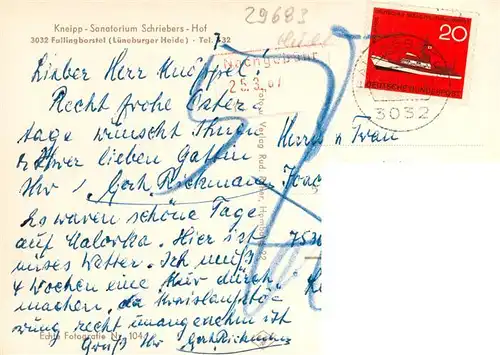 Kneipp-Sanatorium Schriebers-Hof
3032 Fallingbostel (Lüneburger Heide) - Tel. 432
29683
Nachgebühr
25.3.67
DEUTSCHE BUNDESPOST
20
3032
Lieber Herr Knöppel!
Recht frohe Oster=
tage wünscht Ihnen
u Ihrer lieben Gattin
Ihr Gerh. Rickmann
Es waren schöne Tage
auf Mallorka. Hier ist
mieses Wetter. Ich muß
4 Wochen eine Kur durch
machen, da Kreislaufstö
rung recht unangenehm ist
Gruß Ihr Gerh. Rickmann
Herrn u Frau
Echte Fotografie Nr. 104